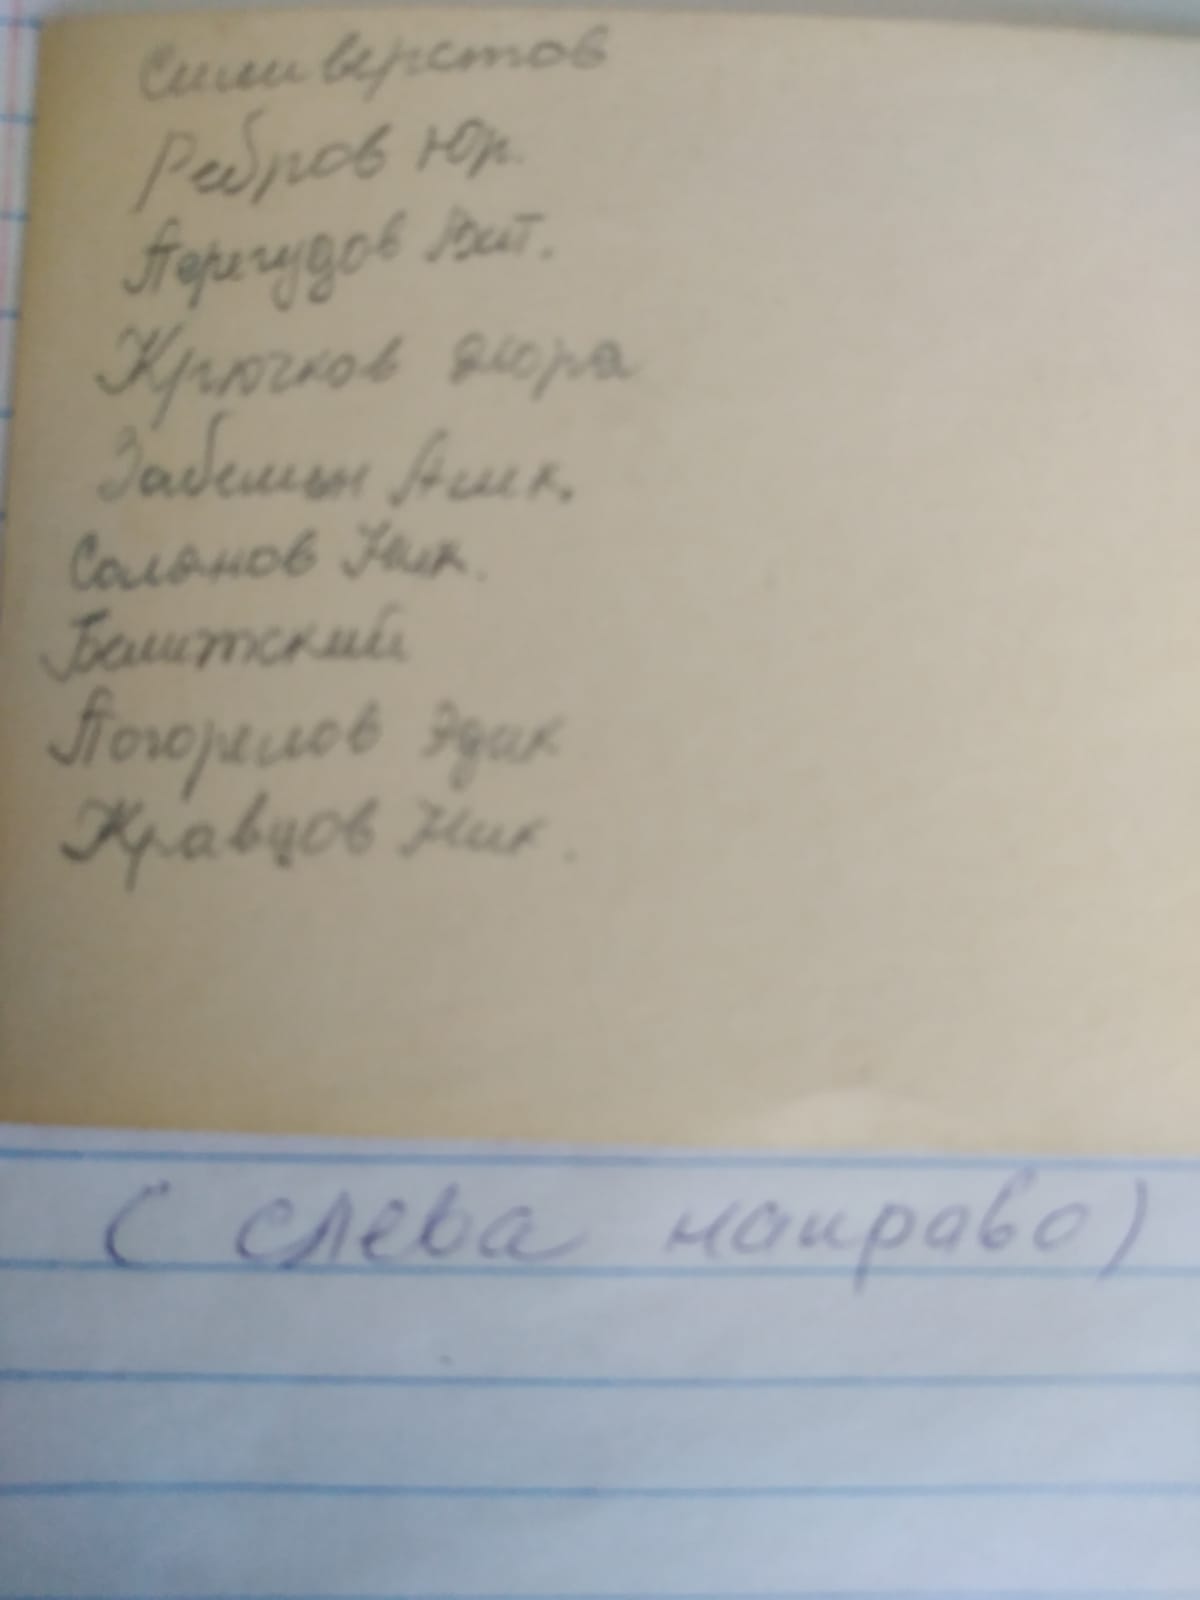 Силиверстов
Ребров Юр.
Перегудов Вит.
Крючков Жора
Забелин Алик.
Соланов Ник.
Погорелов Эдик
Кравцов Ник.
(слева направо)